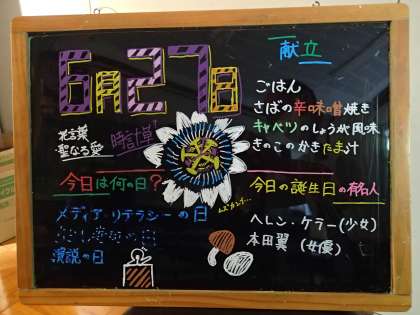 6月27日
花言葉
聖なる愛
時計草
献立
ごはん
さばの辛味噌焼き
キャベツのしょうが風味
きのこのかきたま汁
今日は何の日?
メディア・リテラシーの日
演説の日
今日の誕生日の有名人
ヘレン・ケラー(少女)
本田翼(女優)